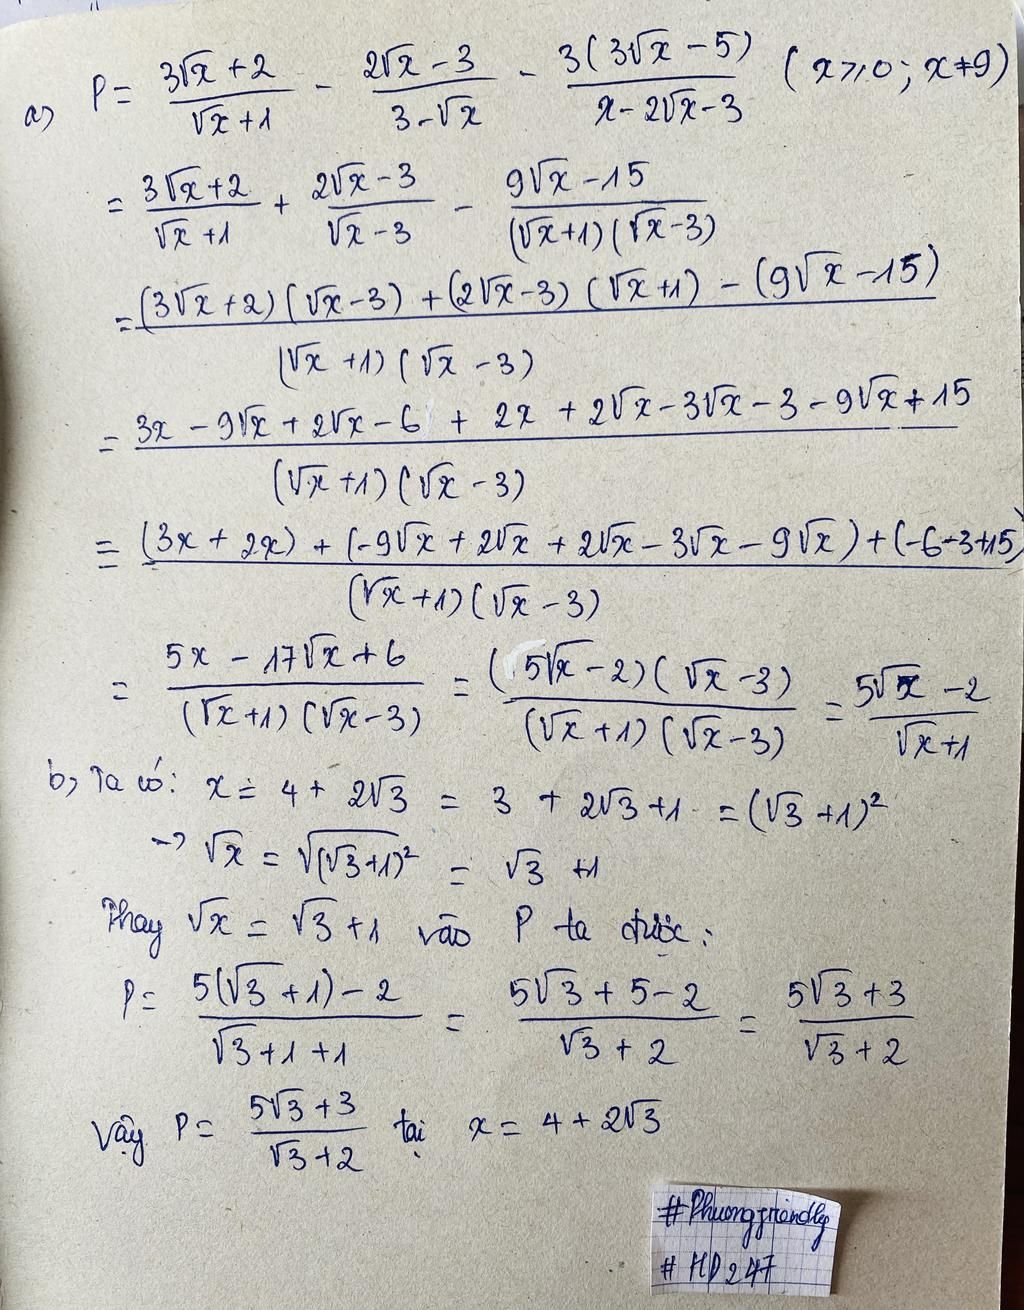 a) P = (3√x + 2)/(√x + 1) - (2√x - 3)/(3 - √x) - 3(3√x - 5)/(x - 2√x - 3) (x ⩾ 0; x ≠ 9)
= (3√x + 2)/(√x + 1) + (2√x - 3)/(√x - 3) - (9√x - 15)/((√x + 1)(√x - 3))
= ((3√x + 2)(√x - 3) + (2√x - 3)(√x + 1) - (9√x - 15))/((√x + 1)(√x - 3))
= (3x - 9√x + 2√x - 6 + 2x + 2√x - 3√x - 3 - 9√x + 15)/((√x + 1)(√x - 3))
= ((3x + 2x) + (-9√x + 2√x + 2√x - 3√x - 9√x) + (-6-3+15))/((√x + 1)(√x - 3))
= (5x - 17√x + 6)/((√x + 1)(√x - 3)) = ((5√x - 2)(√x - 3))/((√x + 1)(√x - 3)) = (5√x - 2)/(√x + 1)
b) Ta có: x = 4 + 2√3 = 3 + 2√3 + 1 = (√3 + 1)²
→ √x = √((√3 + 1)²) = √3 + 1
Thay √x = √3 + 1 vào P ta được:
P = (5(√3 + 1) - 2)/(√3 + 1 + 1) = (5√3 + 5 - 2)/(√3 + 2) = (5√3 + 3)/(√3 + 2)
Vậy P = (5√3 + 3)/(√3 + 2) tại x = 4 + 2√3
#Phuongfriendly
#HD247